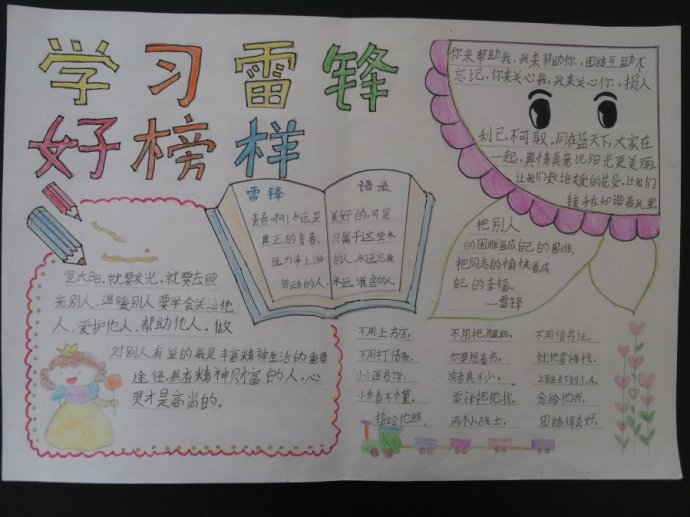 学习雷锋
好榜样
你来帮助我,我来帮助你,团结互助不
忘记。你来关心我,我来关心你,损人
利己不可取。同在蓝天下,大家在
一起,真情真意比阳光更美丽。
让我们栽培友爱的花朵,让我们
携手在和谐春风里
雷锋
青春啊!永远是
真正的青春,
远力争上游
劳动的人,
语录
美好的,可是
只属于这些永
的人,永远忘我
永远谦虚的人。
把别人
的困难当成自己的困难
把同志的愉快看成
自己的幸福。
—雷锋
是太阳,就要发光,就要去照
亮别人、温暖别人要学会关心他
人、爱护他人、帮助他人。做
对别人有益的事是丰富精神生活的重要
途径,具有精神财富的人,心
灵才是高尚的。
不用上书店,
不用打借条,
小小图书馆,
不懂,
不用把腿跑,
你要想看书,
读者真不少。
雷锋把他找,
两个小战士,
不用借书证,
就把雷锋找,
念给他听,
团结得真好。